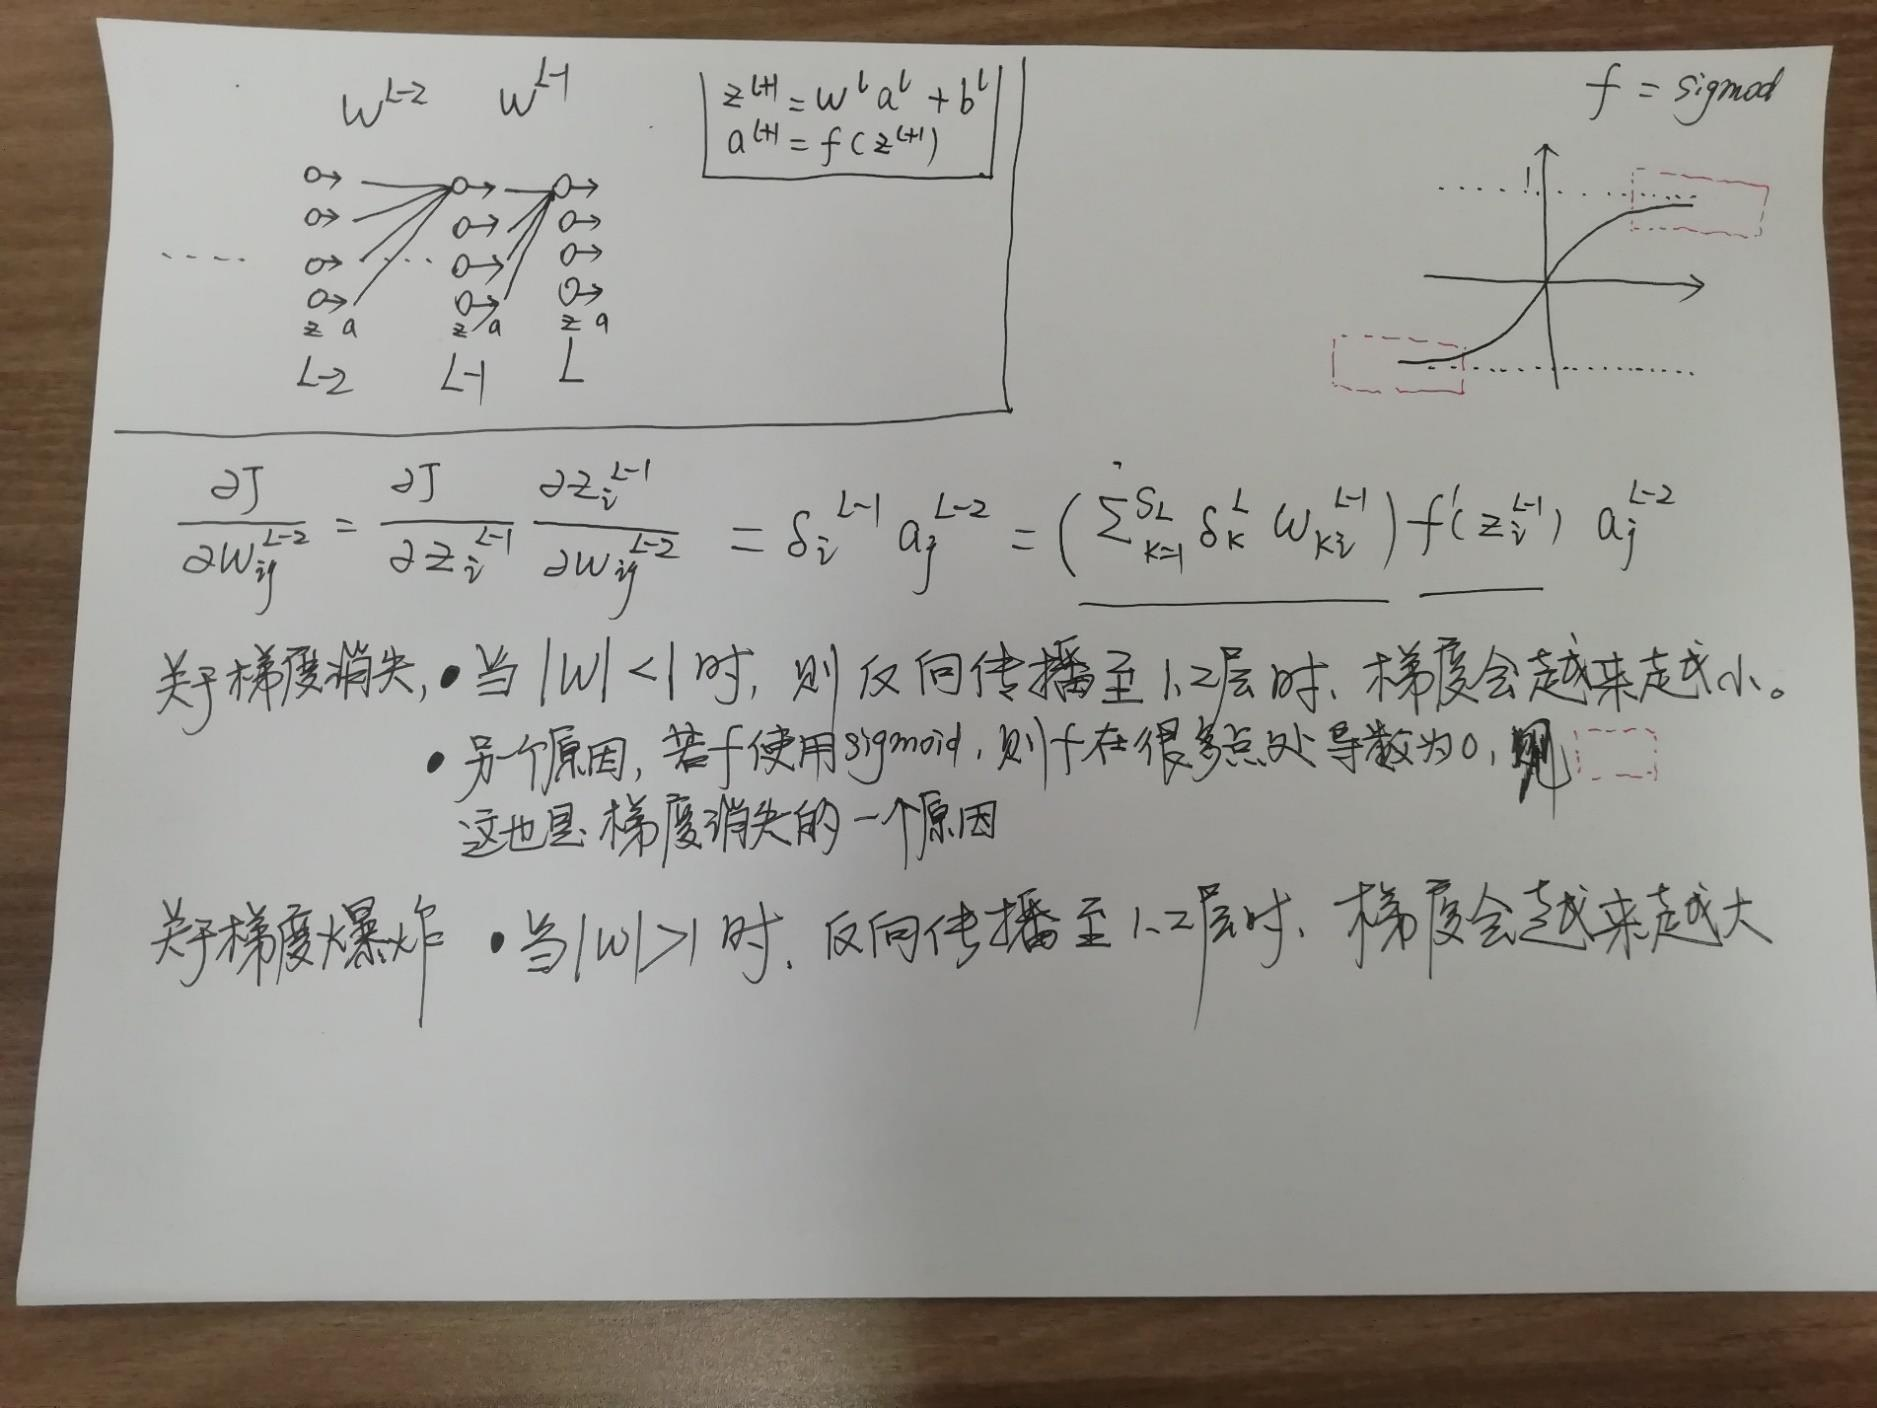 w^{L-2} w^{L-1}
z^{l+1} = w^l a^l + b^l
a^{l+1} = f(z^{l+1})
z a z a z a
L-2 L-1 L
f = sigmod
1
∂J/∂w_{ij}^{L-2} = ∂J/∂z_i^{L-1} ∂z_i^{L-1}/∂w_{ij}^{L-2} = δ_i^{L-1} a_j^{L-2} = (∑_{k=1}^{S_L} δ_k^L w_{ki}^{L-1}) f'(z_i^{L-1}) a_j^{L-2}
关于梯度消失, • 当|w|<1时, 则反向传播至1、2层时、梯度会越来越小。
• 另一个原因, 若f使用sigmoid, 则f在很多点处导数为0,
这也是梯度消失的一个原因
关于梯度爆炸 • 当|w|>1时、反向传播至1、2层时、梯度会越来越大